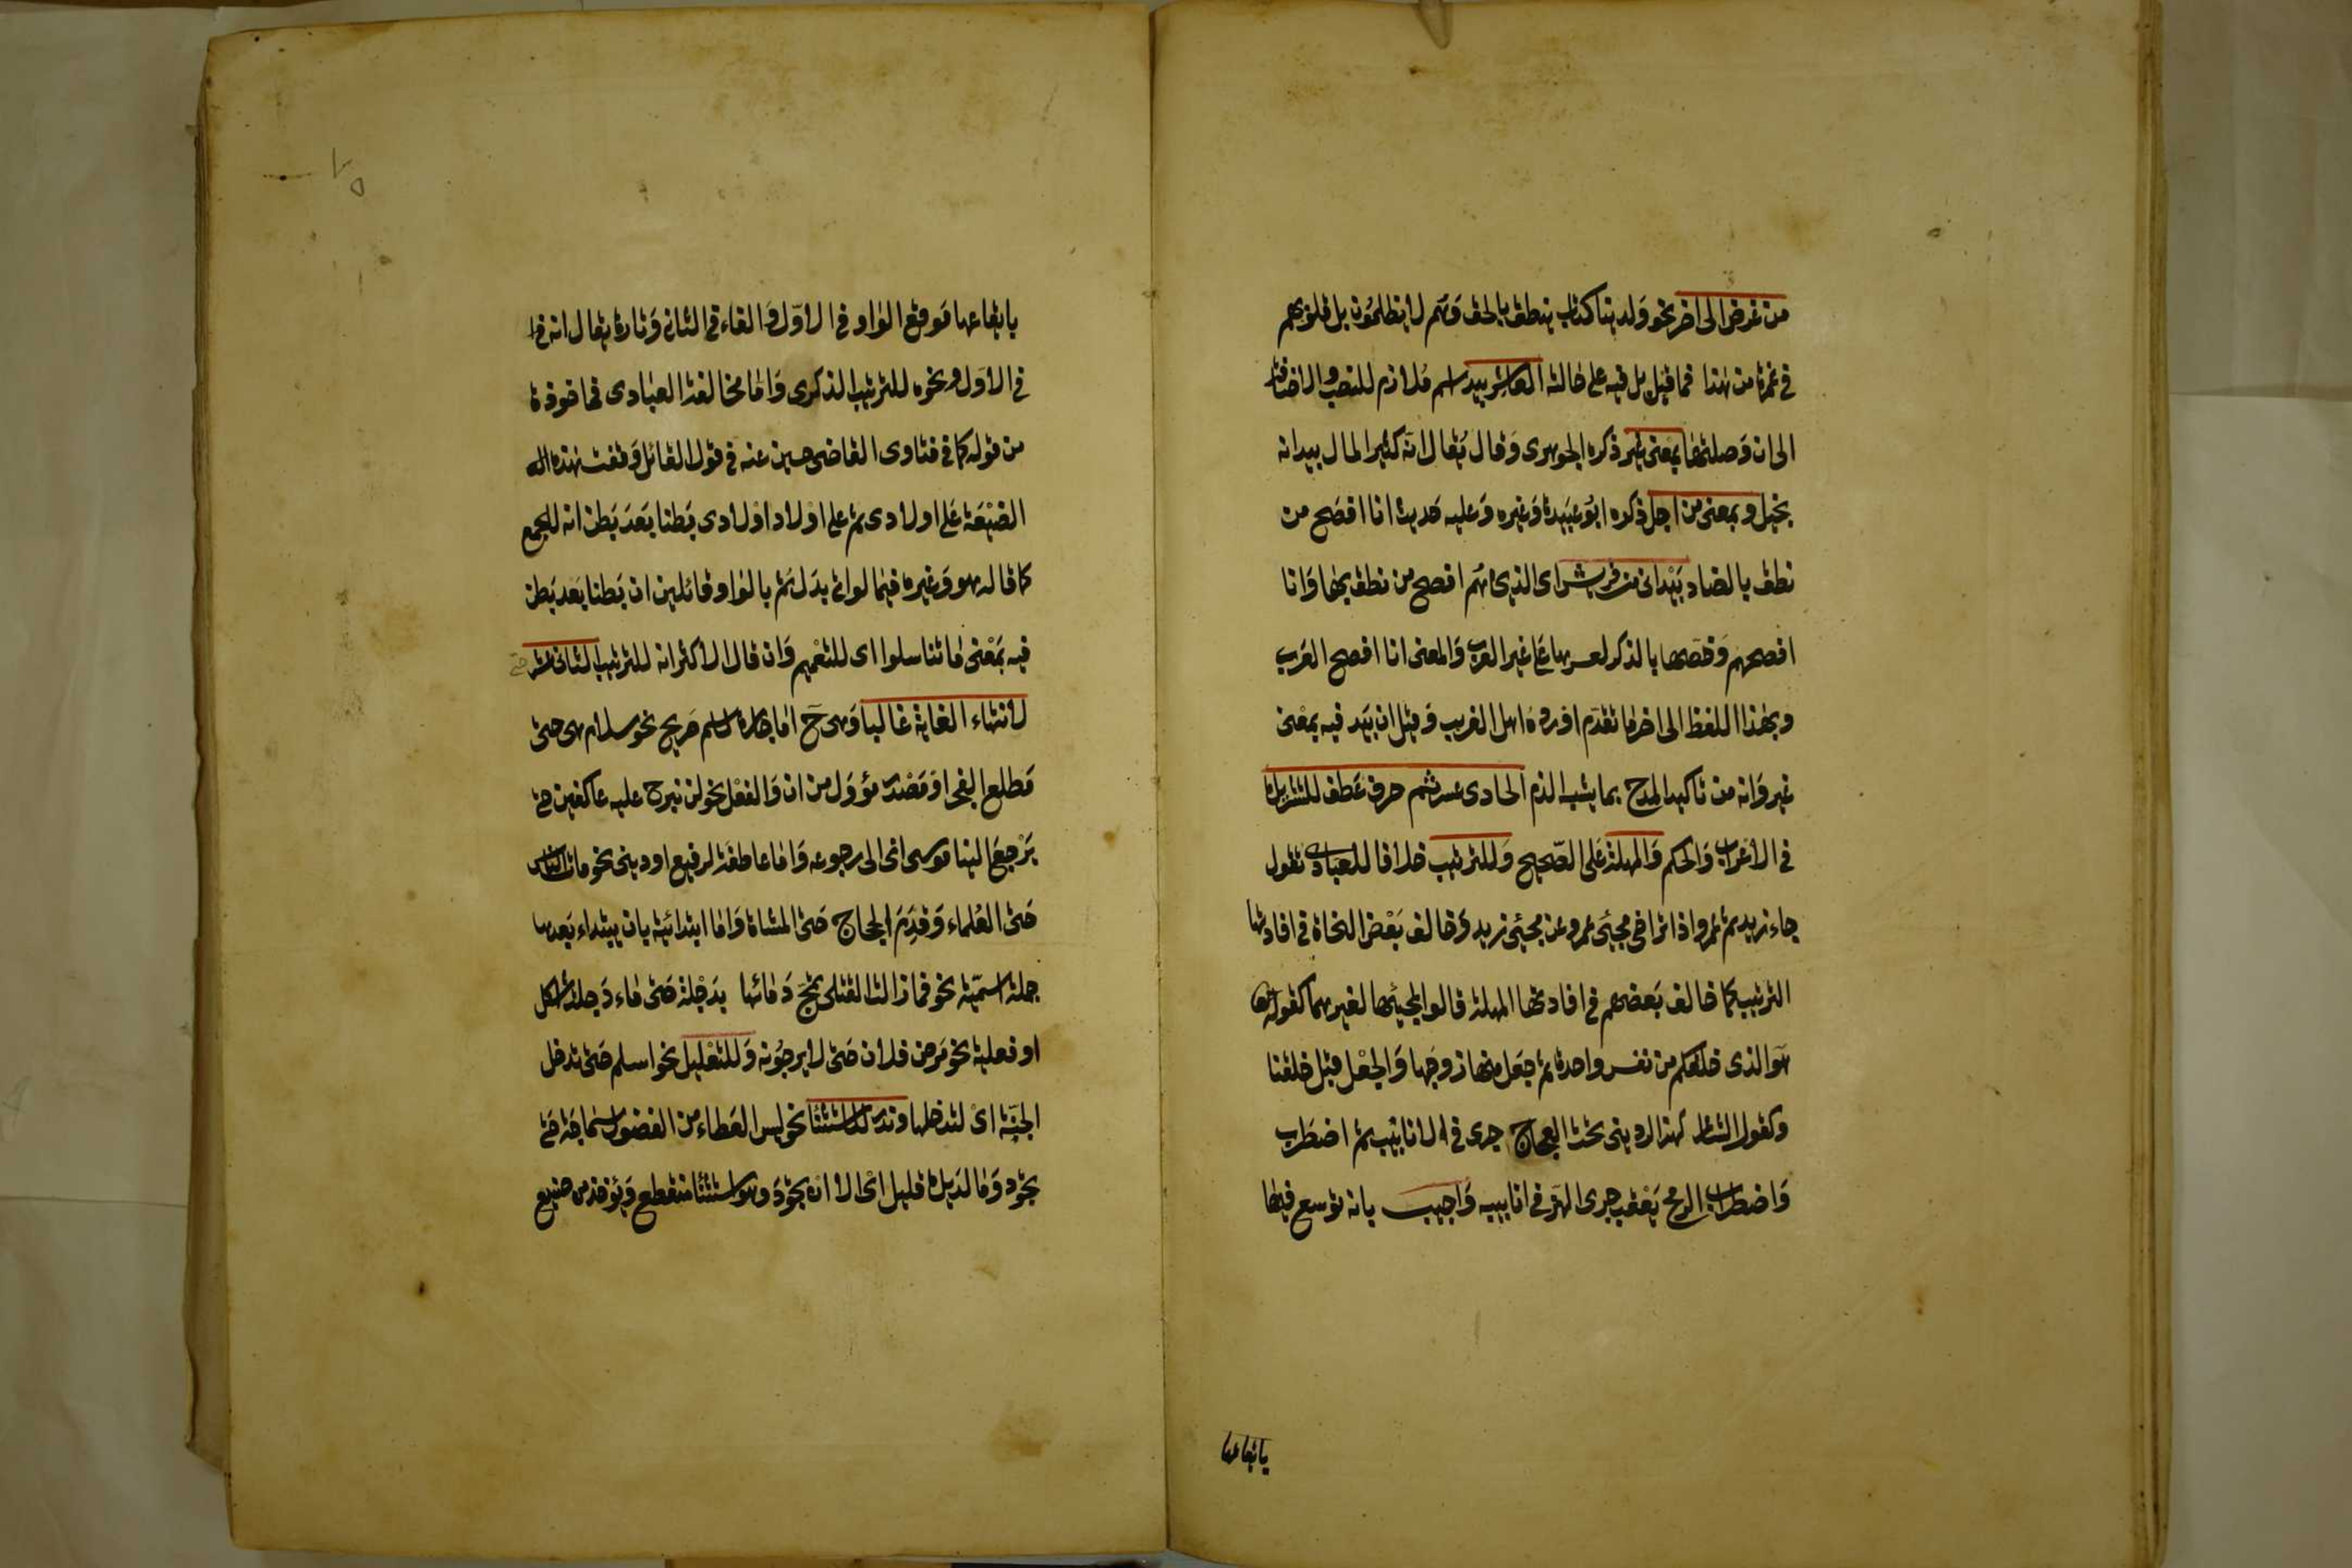 من غرض الى اخر نحو ولدينا كتاب ينطق بالحق وهم لا يظلمون بل قلوبهم
في غمرة من هذا فما قبل بل فيه على حاله العاشر بيد اسم ملازم للنصب والاضافة
الى ان وصلتها بمعنى غير ذكره الجوهرى وقال يقال انه كثير المال بيد انه
بخيل وبمعنى من اجل ذكره ابو عبيدة وغيره وعليه حديث انا افصح من
نطق بالضاد بيد انى من قريش اى الذين هم افصح من نطق بها وانا
افصحهم وخصها بالذكر لعسرها على غير العرب والمعنى انا افصح العرب
وبهذا اللفظ الى اخر ما تقدم اورده اهل الغريب وقيل ان بيد فيه بمعنى
غير وانه من تاكيد المدح بما يشبه الذم الحادى عشر ثم حرف عطف للتشريك
في الاعراب والحكم والمهلة على الصحيح وللترتيب خلافا للعبادى تقول
جاء زيد ثم عمرو اذا تراخى مجيئ عمرو عن مجيئ زيد وخالف بعض النحاة في افادتها
الترتيب كما خالف بعضهم في افادتها المهلة قالوا لمجيئها لغيرهما كقوله تعالى
هو الذى خلقكم من نفس واحدة ثم جعل منها زوجها والجعل قبل خلقنا
وكقول الشاعر كهز الردينى تحت العجاج جرى في الانابيب ثم اضطرب
واضطراب الرمح يعقب جرى الهز في انابيبه واجيب بانه توسع فيها
بايقاعها
بايقاعها موقع الواو في الاول والفاء في الثانى وتارة يقال انها
في الاول ونحوه للترتيب الذكرى واما مخالفة العبادى فماخوذة
من قوله كما في فتاوى القاضى حسين عنه في قول القائل وقفت هذه
الضيعة على اولادى ثم على اولاد اولادى بطنا بعد بطن انه للجمع
كما قاله هو وغيره فيما لو اتى بدل ثم بالواو قائلين ان بطنا بعد بطن
فيه بمعنى ما تناسلوا اى للتعميم وان قال الاكثر انه للترتيب الثانى عشر حتى
لانتهاء الغاية غالبا وهى ح اما جارة لاسم صريح نحو سلام هى حتى
مطلع الفجر او مصدر مؤول من ان والفعل نحو لن نبرح عليه عاكفين حتى
يرجع الينا موسى اى الى رجوعه واما عاطفة لرفيع او دنى نحو مات الناس
حتى العلماء وقدم الحجاج حتى المشاة واما ابتدائية بان يبتداء بعدها
جملة اسمية نحو فما زالت القتلى تمج دمائها بدجلة حتى ماء دجلة اشكل
او فعلية نحو مرض فلان حتى لا يرجونه وللتعليل نحو اسلم حتى تدخل
الجنة اى لتدخلها وندر للاستثنا نحو ليس العطاء من الفضول سماحة حتى
تجود وما لديك قليل اى الا ان تجود وهو استثنا منقطع ويؤخذ من صنيع